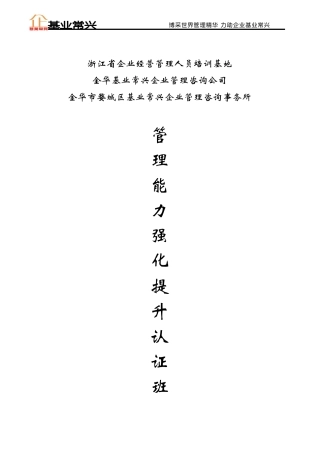 基业常兴
博采世界管理精华 力助企业基业常兴
浙江省企业经营管理人员培训基地
金华基业常兴企业管理咨询公司
金华市婺城区基业常兴企业管理咨询事务所
管
理
能
力
强
化
提
升
认
证
班